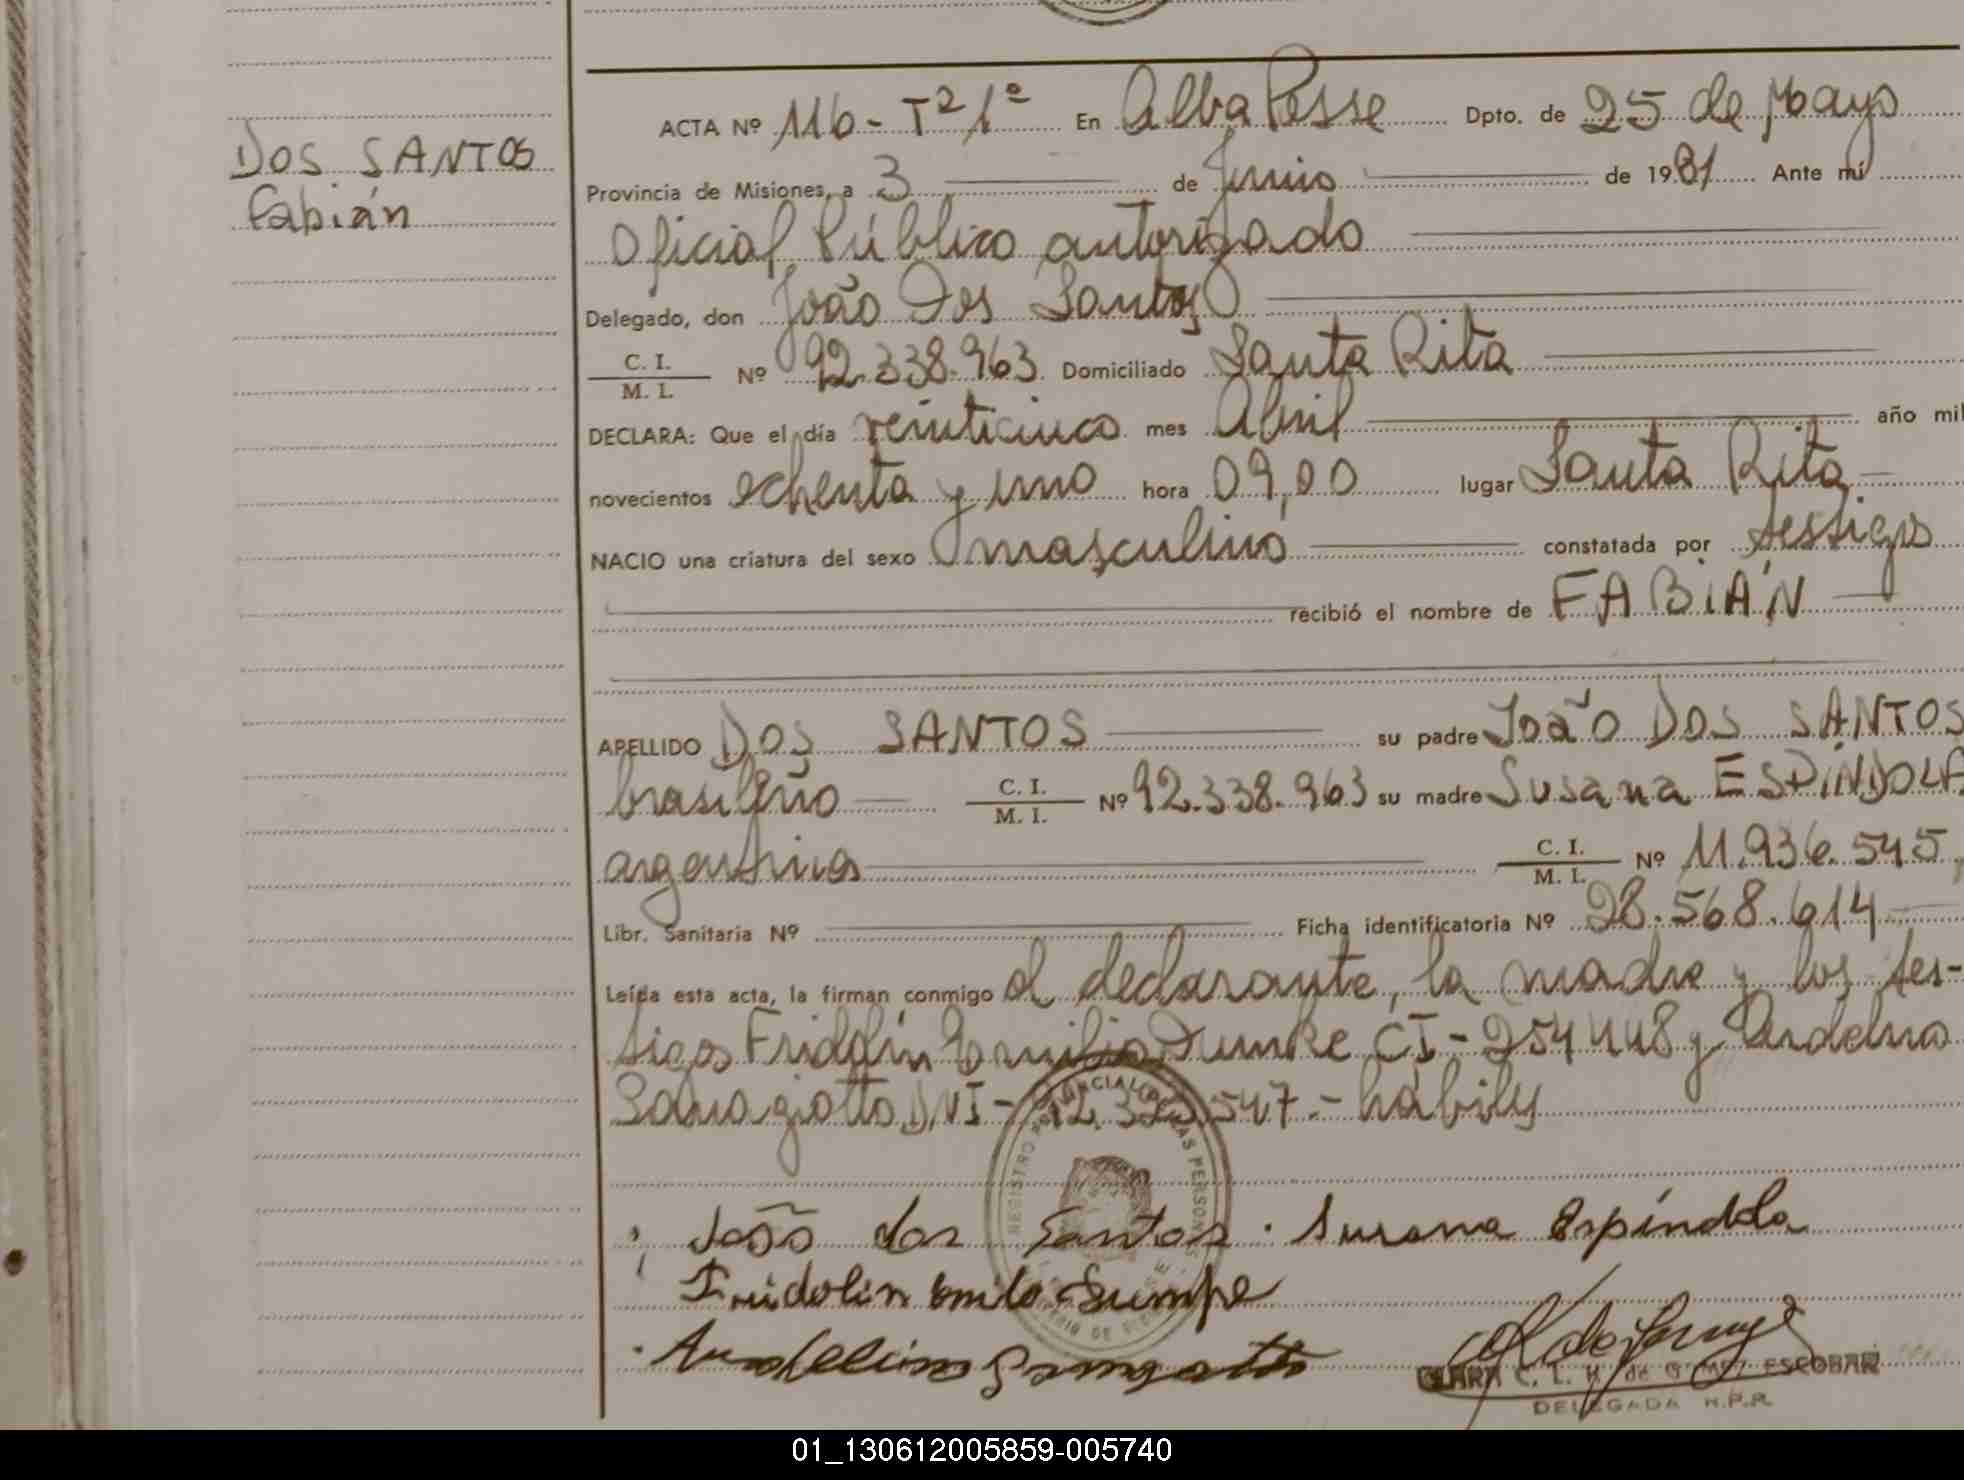 DOS SANTOS
Fabián
ACTA Nº 116 - Tº 1º En Alba Posse Dpto. de 25 de Mayo
Provincia de Misiones, a 3 de Junio de 1981 Ante mí
Oficial Público autorizado
Delegado, don João Dos Santos
C. I.
M. I.
Nº 92.338.963 Domiciliado Santa Rita
DECLARA: Que el día veinticinco mes Abril año mil
novecientos ochenta y uno hora 09,00 lugar Santa Rita
NACIO una criatura del sexo masculino constatada por testigos
recibió el nombre de FABIÁN
APELLIDO DOS SANTOS su padre João DOS SANTOS
brasileño C. I. M. I. Nº 92.338.963 su madre Susana ESPÍNDOLA
argentina C. I. M. I. Nº 11.936.545,
Libr. Sanitaria Nº Ficha identificatoria Nº 28.568.614
Leída esta acta, la firman conmigo el declarante, la madre y los tes-
tigos Fridolín Emilio CI - 254448 y Andelino
DNI - 547.- hábiles
João dos Santos. Susana Espíndola
Fridolin Emilo
Andelino
CLARA C. L. H. de GOMEZ ESCOBAR
DELEGADA R.P.P.
01_130612005859-005740